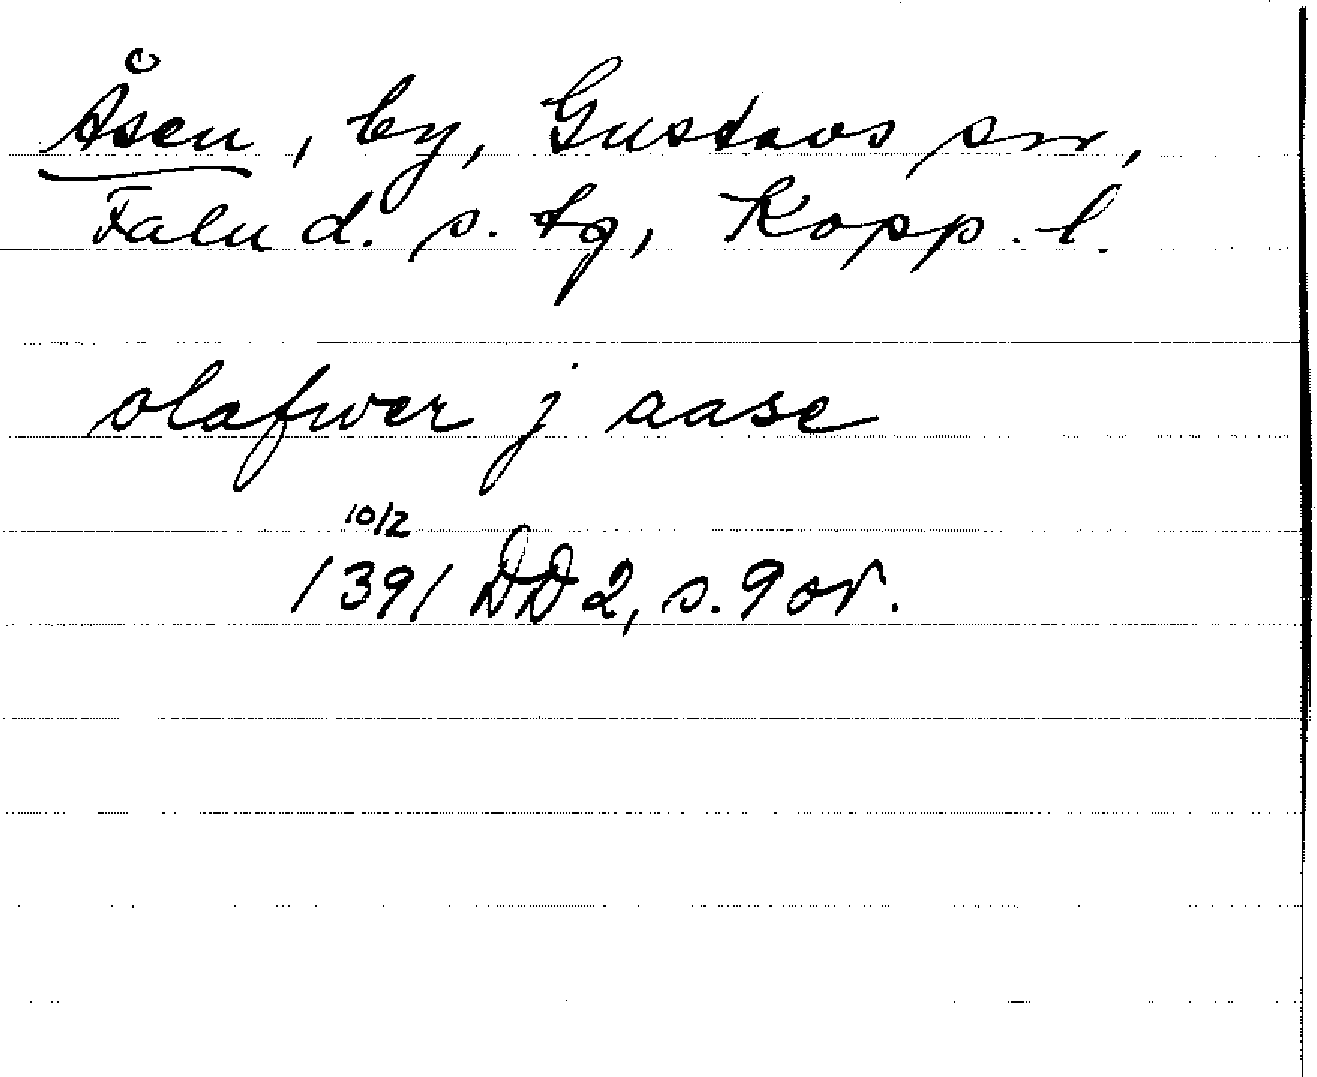 Åsen, by, Gustavs sn,
Falu d. s. tg, Kopp. l.
olafwer j aase
10/2
1391 DD 2, s. 9 or.